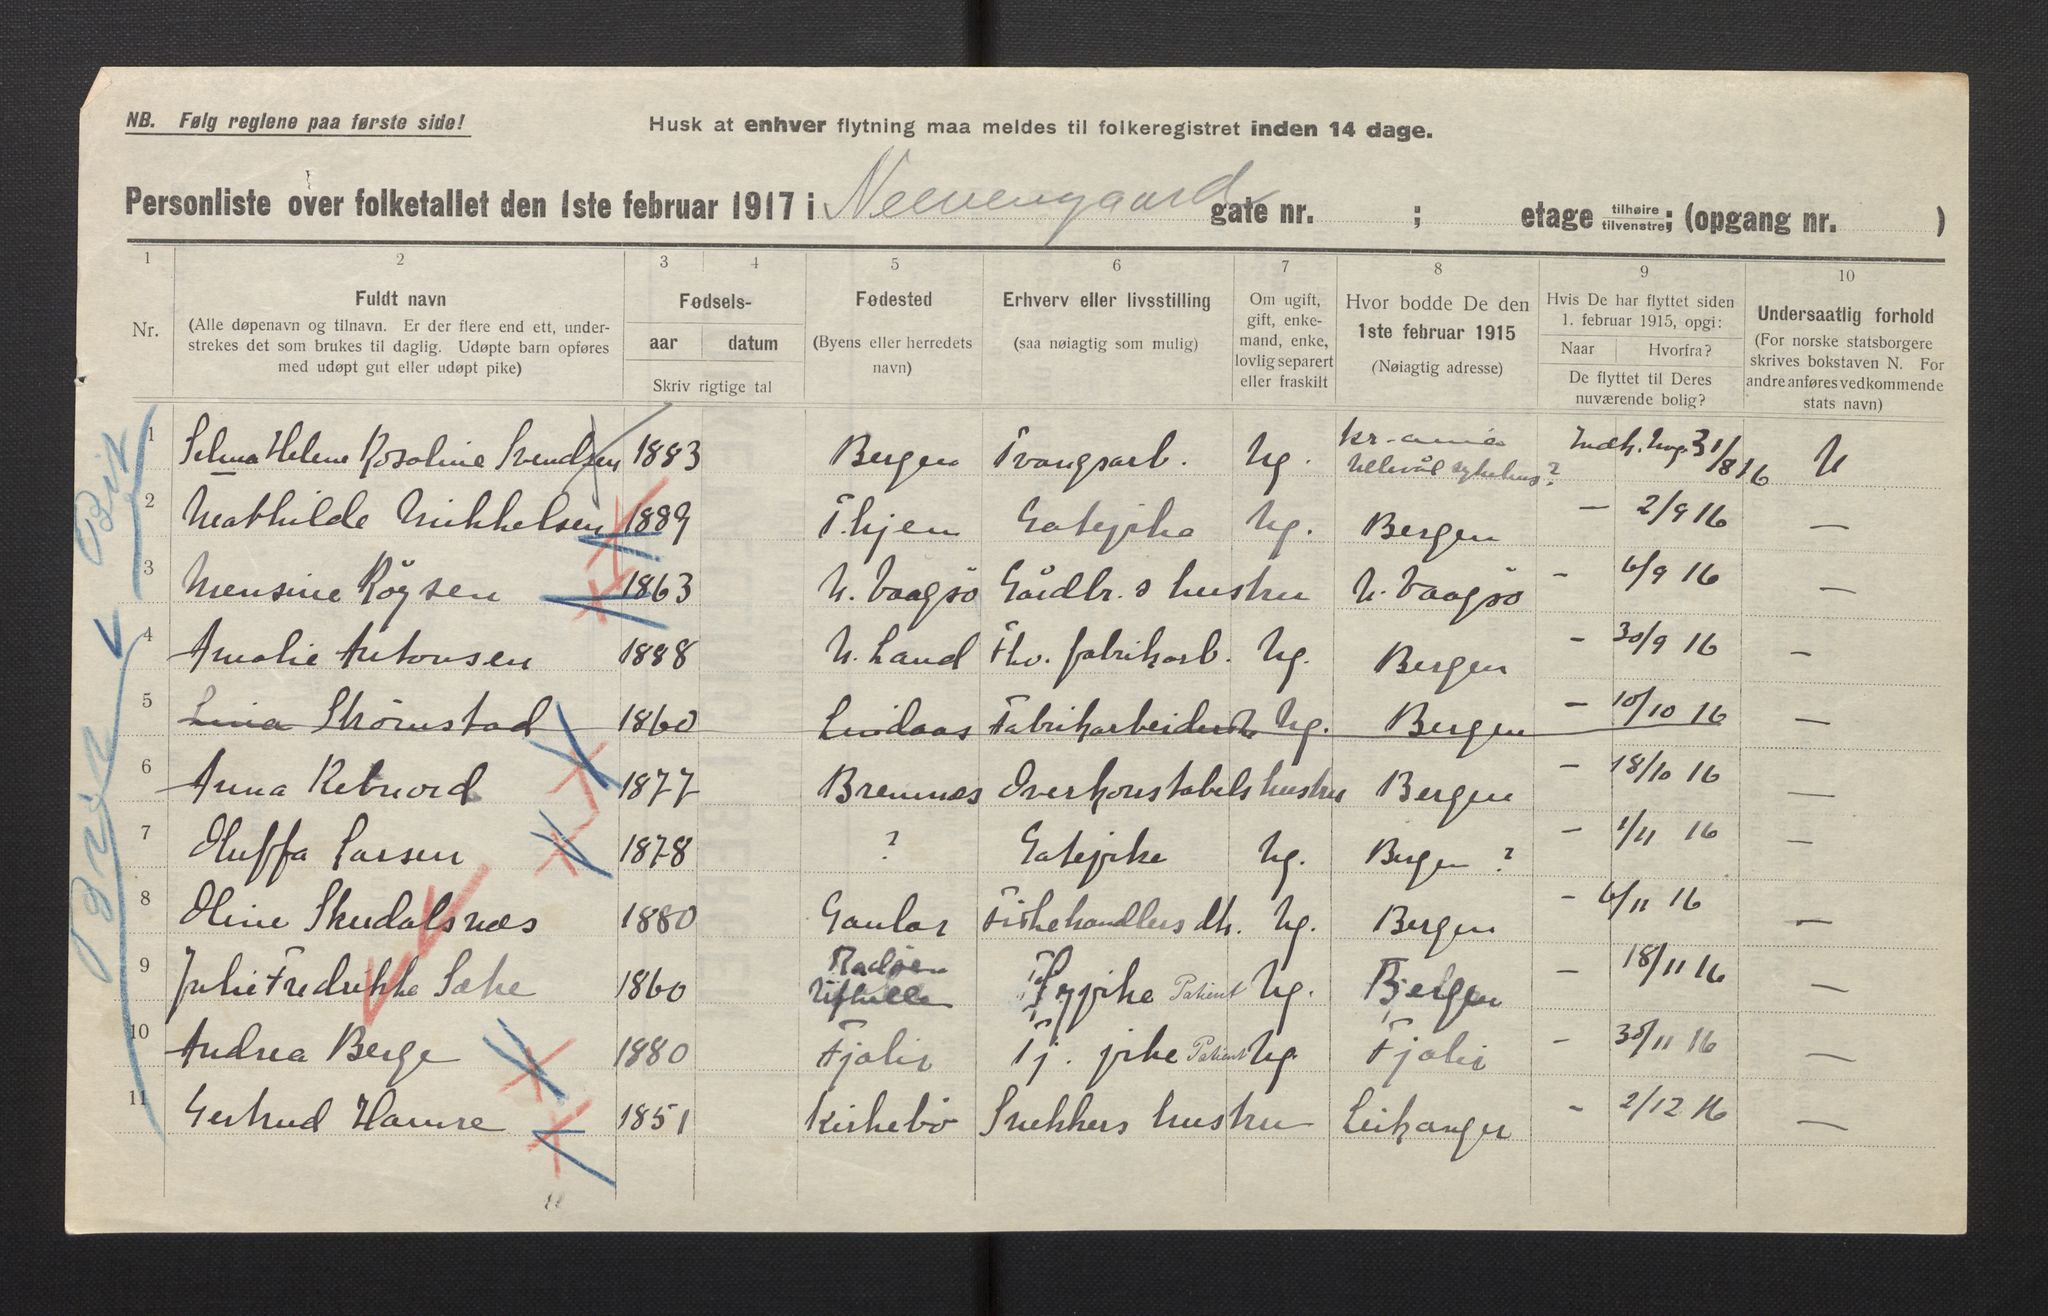 NB. Følg reglene paa første side!
Husk at enhver flytning maa meldes til folkeregistret inden 14 dage.
Personliste over folketallet den 1ste februar 1917 i Neevengaard gate nr. ; etage tilhøire tilvenstre; (opgang nr. )
1 2 3 4 5 6 7 8 9 10
Nr.
Fuldt navn
(Alle døpenavn og tilnavn. Er der flere end ett, under-
strekes det som brukes til daglig. Udøpte barn opføres
med udøpt gut eller udøpt pike)
Fødsels-
aar datum
Skriv rigtige tal
Fødested
(Byens eller herredets
navn)
Erhverv eller livsstilling
(saa nøiagtig som mulig)
Om ugift,
gift, enke-
mand, enke,
lovlig separert
eller fraskilt
Hvor bodde De den
1ste februar 1915
(Nøiagtig adresse)
Hvis De har flyttet siden
1. februar 1915, opgi:
Naar Hvorfra?
De flyttet til Deres
nuværende bolig?
Undersaatlig forhold
(For norske statsborgere
skrives bokstaven N. For
andre anføres vedkommende
stats navn)
1 Selma Helene Rosoline Svendsen 1883 Bergen Tvangsarb. Ug. Kr-ania Ullevål sykehus? 31/8 16 N
2 Mathilde Mikkelsen 1889 T.hjem Gatepike Ug. Bergen — 2/9 16 —
3 Mensine Røysen 1863 N. Vaagsø Gårdbr.s hustru N. Vaagsø — 6/9 16 —
4 Amalie Antonsen 1888 N. Land Fhv. fabrikarb. Ug. Bergen — 30/9 16 —
5 Lina Strømstad 1860 Lindaas Fabrikarbeiderske Ug. Bergen — 10/10 16 —
6 Anna Rebnord 1877 Bremnæs Overkonstabels hustru Bergen — 18/10 16 —
7 Oluffa Larsen 1878 ? Gatepike Ug. Bergen ? — 1/11 16 —
8 Oline Skudalsnæs 1880 Gaular Fiskehandlers dtr. Ug. Bergen — 6/11 16 —
9 Julie Fredrikke Sæke 1860 Radøen Patient Ug. Bergen — 18/11 16 —
10 Andrea Berge 1880 Fjaler Tj. pike Patient Ug. Fjaler — 30/11 16 —
11 Gertrud Hamre 1851 Kirkebø Snekkers hustru Leikanger — 2/12 16 —
11